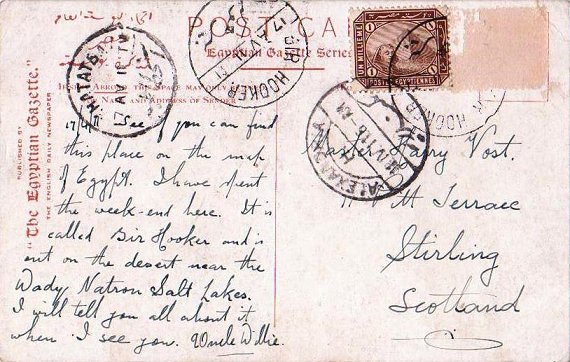 POST CA
Egyptian Gazette Series
PUBLISHED BY
"The Egyptian Gazette."
THE ENGLISH DAILY NEWSPAPER
ABROAD THIS SPACE MAY ONLY
NAME AND ADDRESS OF SENDER
KHATATBA
BIR HOOKER
UN MILLIEME
1 1
POSTES EGYPTIENNES
ALEXANDRIA
HOOKER
17/4/11 See if you can find
this place on the map
of Egypt. I have spent
the week-end here. It is
called Bir Hooker and is
out on the desert near the
Wady Natron Salt Lakes.
I will tell you all about it
when I see you. Uncle Willie.
Master Harry Vost.
11 Mt Terrace
Stirling
Scotland